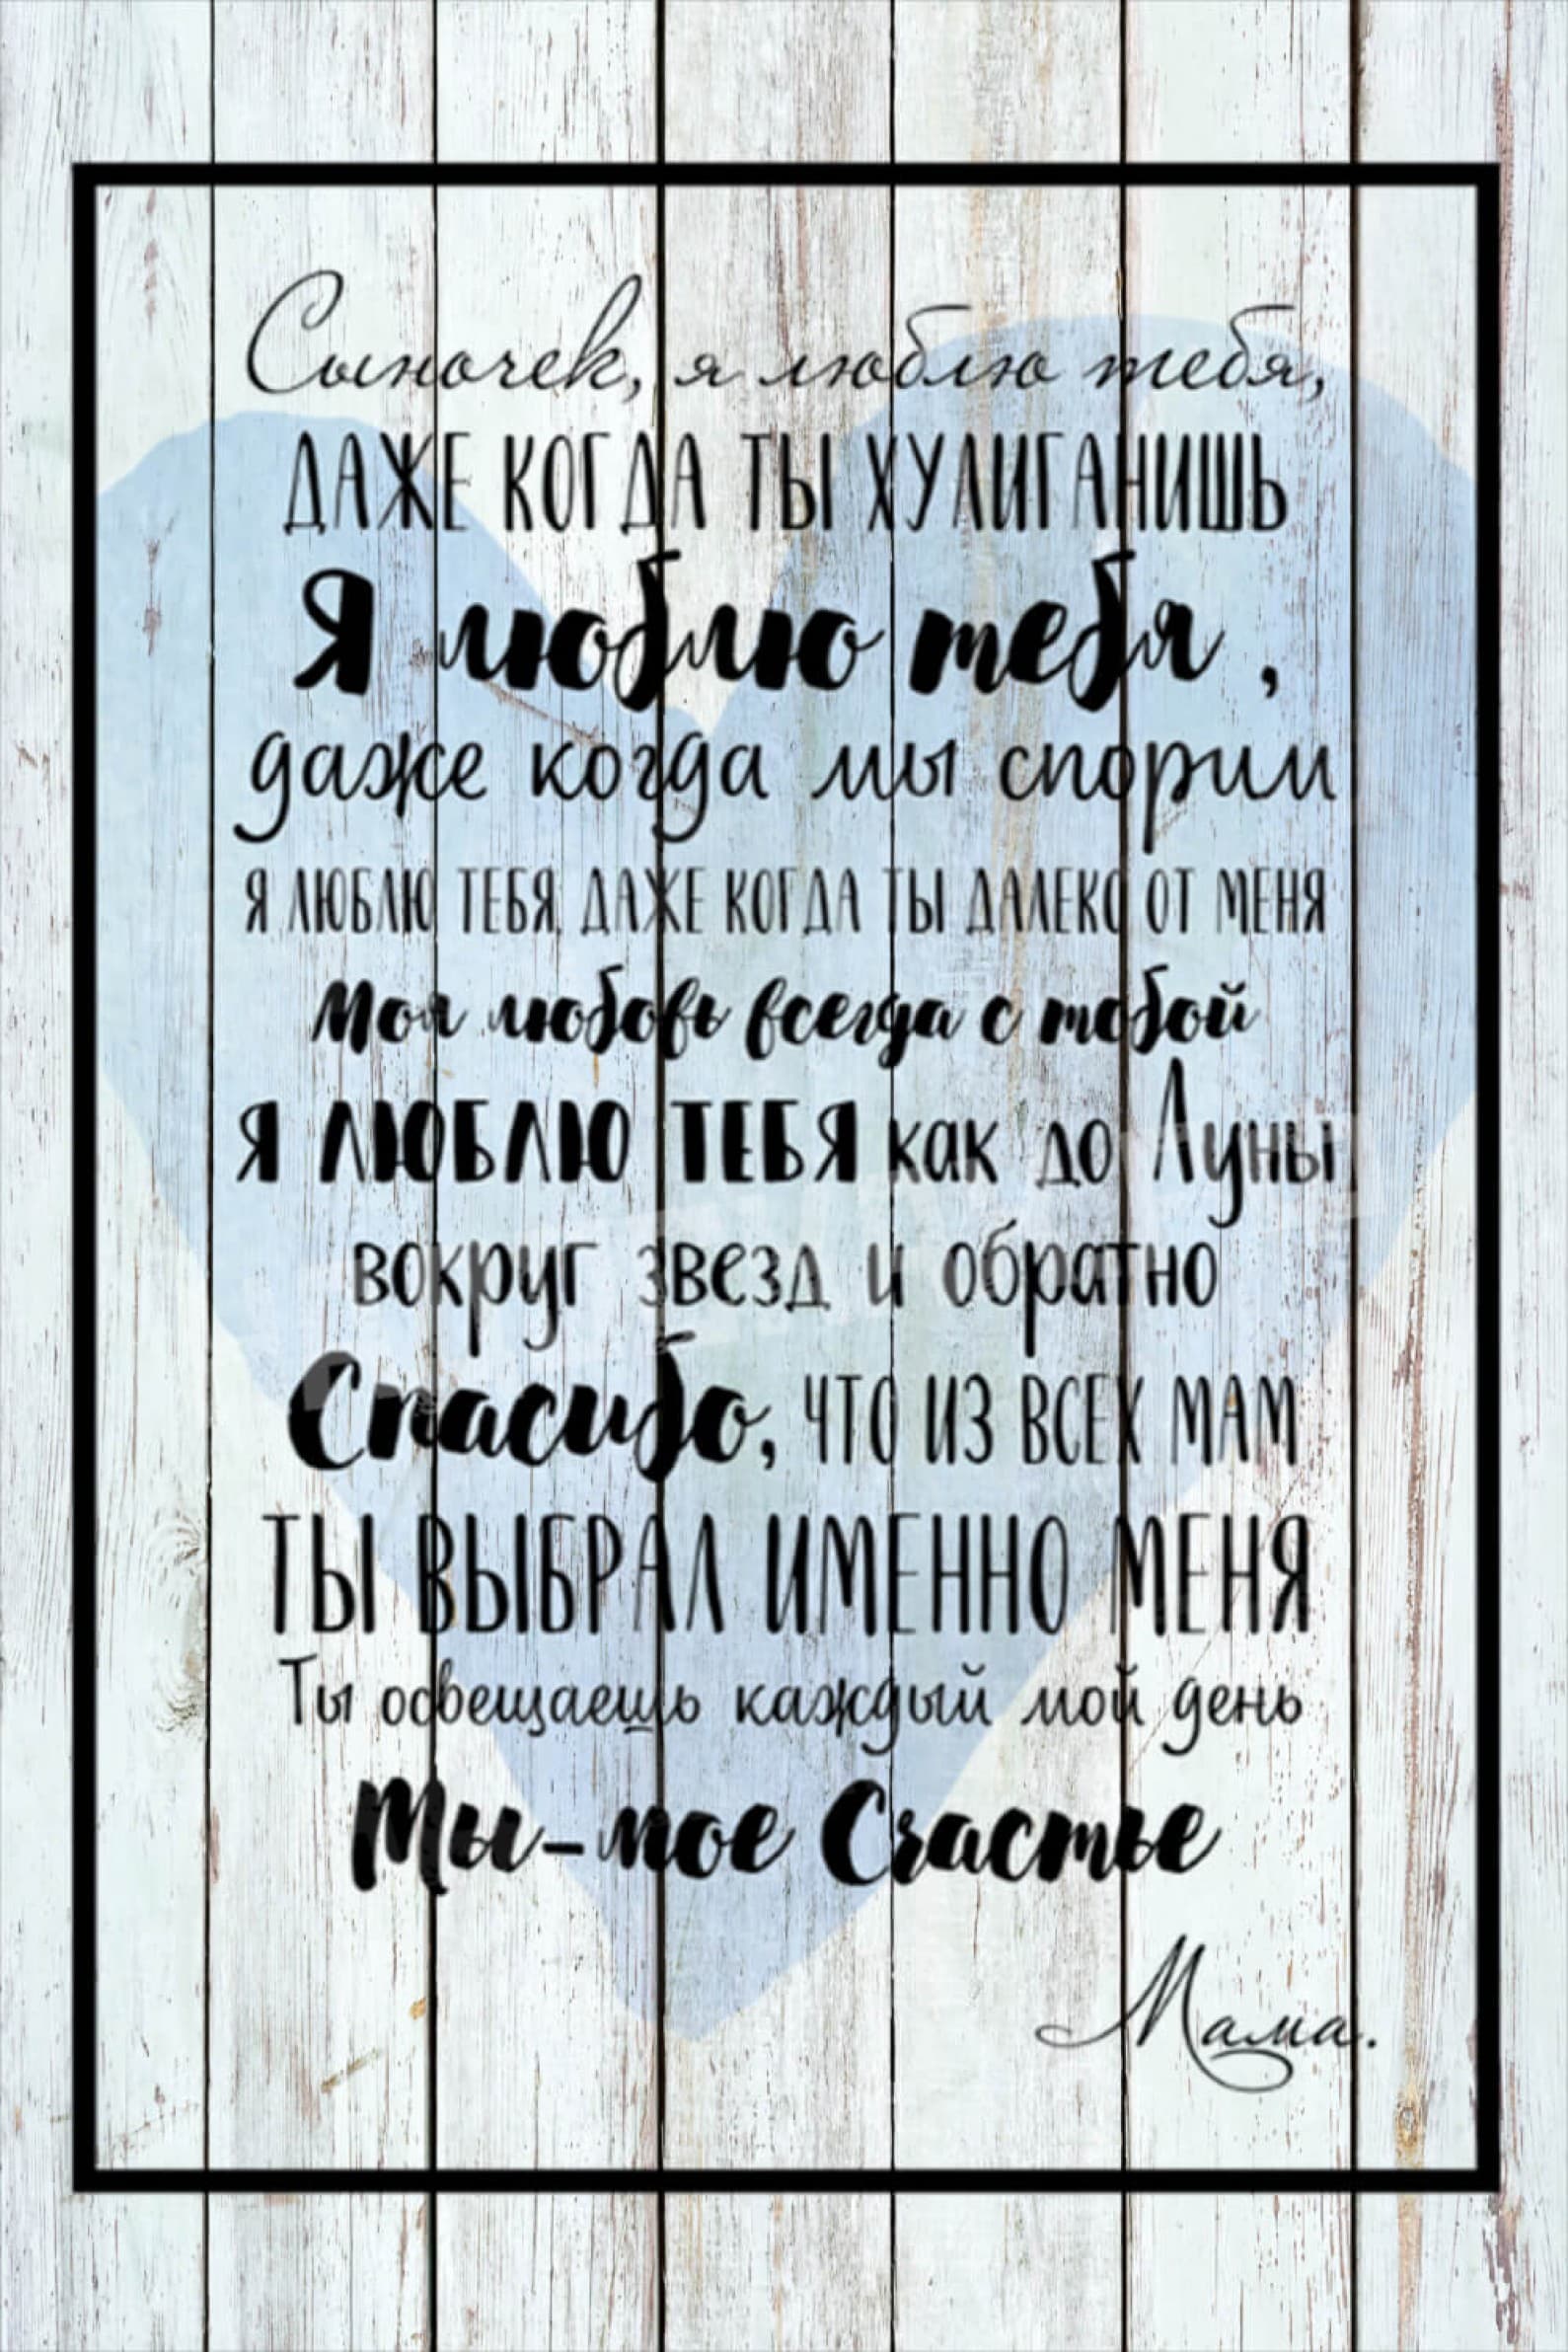 Сыночек, я люблю тебя,
ДАЖЕ КОГДА ТЫ ХУЛИГАНИШЬ
Я люблю тебя ,
даже когда мы спорим
Я ЛЮБЛЮ ТЕБЯ, ДАЖЕ КОГДА ТЫ ДАЛЕКО ОТ МЕНЯ
Моя любовь всегда с тобой
Я ЛЮБЛЮ ТЕБЯ как до Луны
вокруг звезд и обратно
Спасибо, ЧТО ИЗ ВСЕХ МАМ
ТЫ ВЫБРАЛ ИМЕННО МЕНЯ
Ты освещаешь каждый мой день
Ты-мое Счастье
Мама.